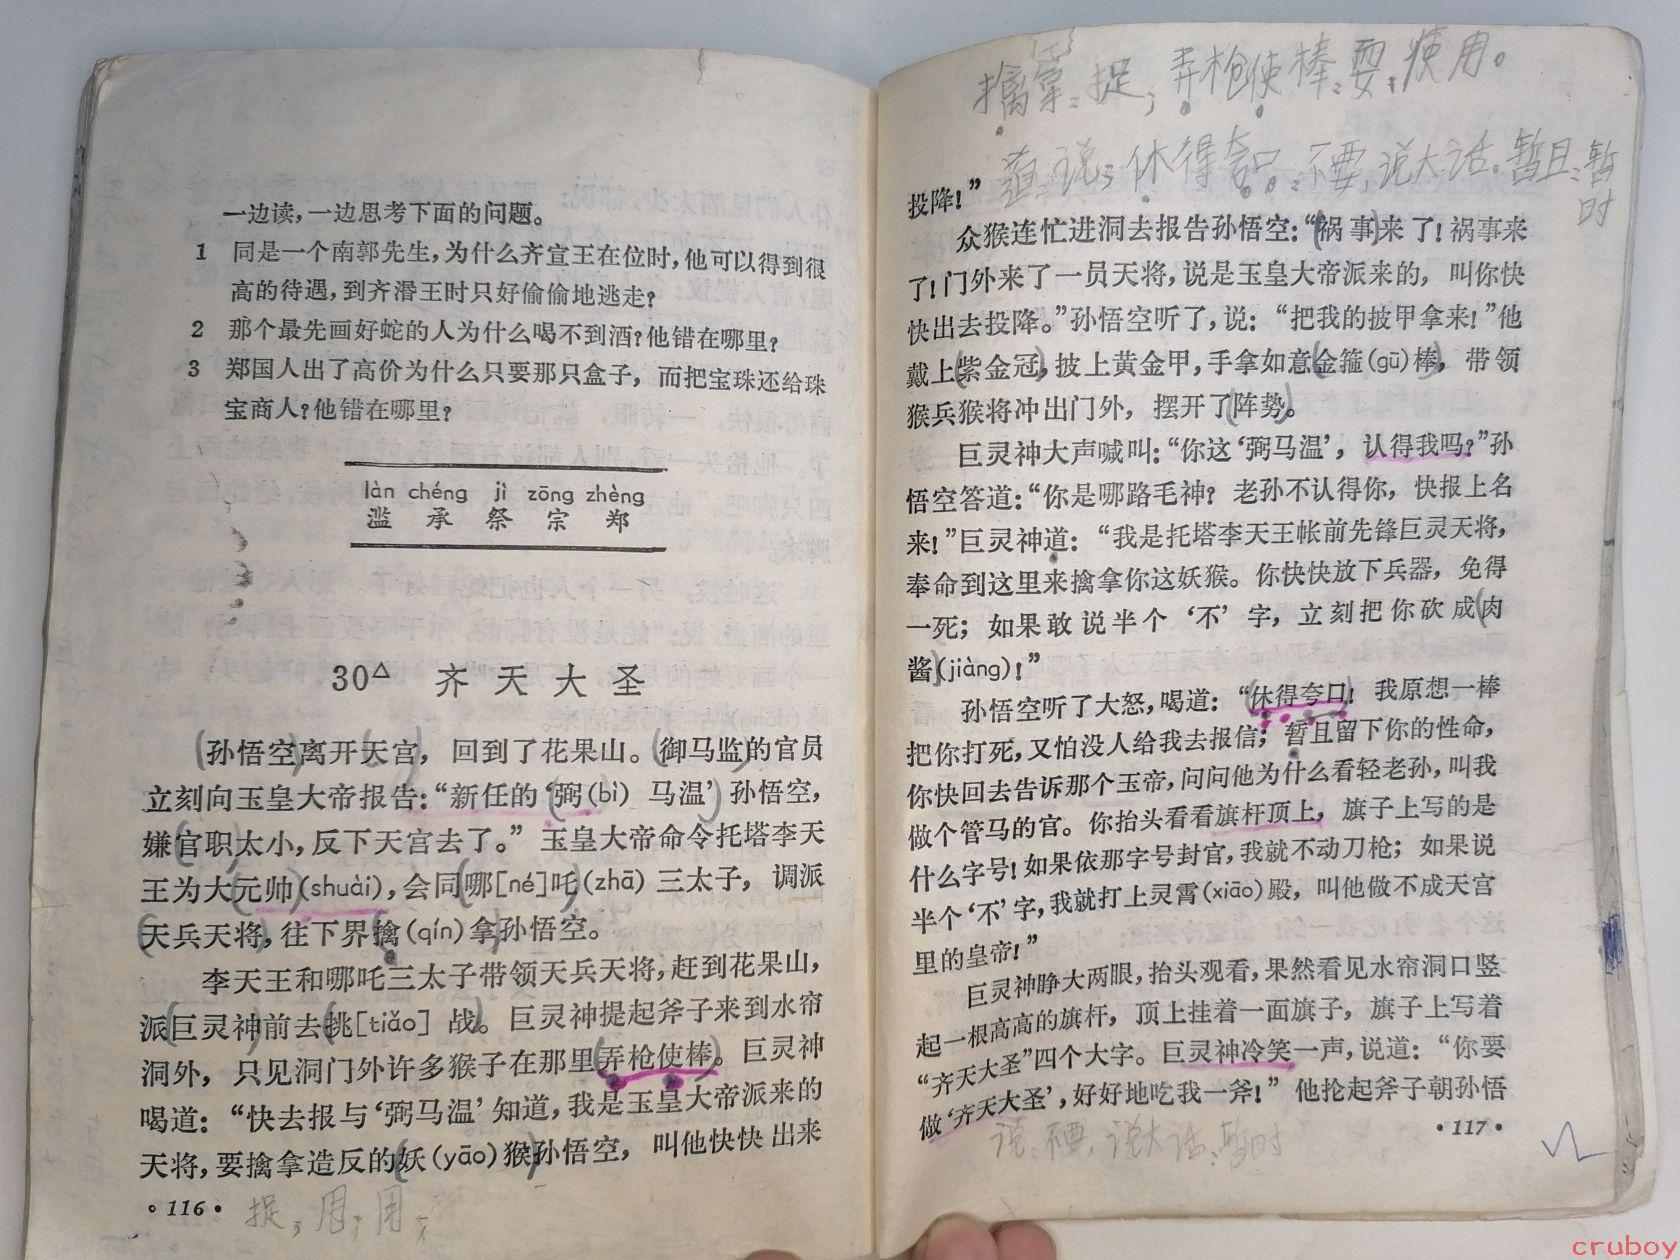 一边读，一边思考下面的问题。
1 同是一个南郭先生，为什么齐宣王在位时，他可以得到很
高的待遇，到齐湣王时只好偷偷地逃走？
2 那个最先画好蛇的人为什么喝不到酒？他错在哪里？
3 郑国人出了高价为什么只要那只盒子，而把宝珠还给珠
宝商人？他错在哪里？
làn chéng jì zōng zhèng
滥 承 祭 宗 郑
30△ 齐天大圣
孙悟空离开天宫，回到了花果山。御马监的官员
立刻向玉皇大帝报告：“新任的‘弼(bì)马温’孙悟空，
嫌官职太小，反下天宫去了。”玉皇大帝命令托塔李天
王为大元帅(shuài)，会同哪[né]吒(zhā)三太子，调派
天兵天将，往下界擒(qín)拿孙悟空。
李天王和哪吒三太子带领天兵天将，赶到花果山，
派巨灵神前去挑[tiǎo]战。巨灵神提起斧子来到水帘
洞外，只见洞门外许多猴子在那里弄枪使棒。巨灵神
喝道：“快去报与‘弼马温’知道，我是玉皇大帝派来的
天将，要擒拿造反的妖(yāo)猴孙悟空，叫他快快出来
•116•
捉，用，用，
擒拿：捉，弄枪使棒：耍，使用。
道：说；休得夸口：不要，说大话。暂且：暂
时
投降！”
众猴连忙进洞去报告孙悟空：“祸事来了！祸事来
了！门外来了一员天将，说是玉皇大帝派来的，叫你快
快出去投降。”孙悟空听了，说：“把我的披甲拿来！”他
戴上紫金冠，披上黄金甲，手拿如意金箍(gū)棒，带领
猴兵猴将冲出门外，摆开了阵势。
巨灵神大声喊叫：“你这‘弼马温’，认得我吗？”孙
悟空答道：“你是哪路毛神？老孙不认得你，快报上名
来！”巨灵神道：“我是托塔李天王帐前先锋巨灵天将，
奉命到这里来擒拿你这妖猴。你快快放下兵器，免得
一死；如果敢说半个‘不’字，立刻把你砍成肉
酱(jiàng)！”
孙悟空听了大怒，喝道：“休得夸口！我原想一棒
把你打死，又怕没人给我去报信；暂且留下你的性命，
你快回去告诉那个玉帝，问问他为什么看轻老孙，叫我
做个管马的官。你抬头看看旗杆顶上，旗子上写的是
什么字号！如果依那字号封官，我就不动刀枪；如果说
半个‘不’字，我就打上灵霄(xiāo)殿，叫他做不成天宫
里的皇帝！”
巨灵神睁大两眼，抬头观看，果然看见水帘洞口竖
起一根高高的旗杆，顶上挂着一面旗子，旗子上写着
“齐天大圣”四个大字。巨灵神冷笑一声，说道：“你要
做‘齐天大圣’，好好地吃我一斧！”他抡起斧子朝孙悟
•117•
说：不要，说大话：暂时
cruboy